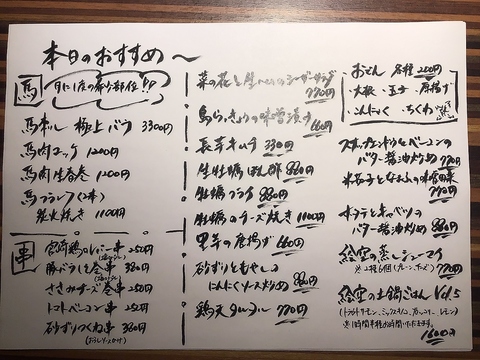 本日のおすすめ〜
馬
月に1度の希少部位
馬刺し 極上バラ 3300円
馬肉ユッケ 1200円
馬肉生春巻 1200円
馬フランク(2本)
炭火焼き 1100円
串
宮崎鶏のレバー串 250円
豚バラしそ巻串 380円
ささみチーズ巻串 250円
トマトベーコン串 250円
砂ずりつくね串 380円
菜の花と生ハムのシーザーサラダ 770円
島らっきょうの味噌漬け 660円
長芋キムチ 330円
生牡蠣 ぽん酢 880円
牡蠣フライ 880円
牡蠣のチーズ焼き 1100円
里芋の唐揚げ 660円
砂ずりともやしの
にんにくソース炒め 880円
鶏天タルタル 770円
おでん 各種 250円
・大根 ・玉子 ・厚揚げ
・こんにゃく ・ちくわ
スナップエンドウとベーコンの
バター醤油炒め 770円
米茄子となすふの味噌田楽
770円
ホタテとキャベツの
バター醤油炒め 880円
絵空の蒸しシューマイ 770円
絵空の土鍋ごはん Vol.5
1600円